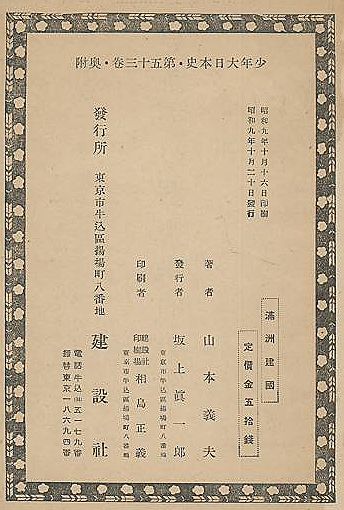 少年大日本史・第五十三卷・奥附
昭和九年十月十六日印刷
昭和九年十月二十日發行
滿洲建國
定價金五拾錢
著者 山本義夫
發行者 坂上眞一郎
東京市牛込區揚場町八番地
印刷者 相島正義
建設社印刷場
東京市牛込區揚場町八番地
發行所 東京市牛込區揚場町八番地 建設社
電話牛込㉞五一七九番
振替東京一八六九四番